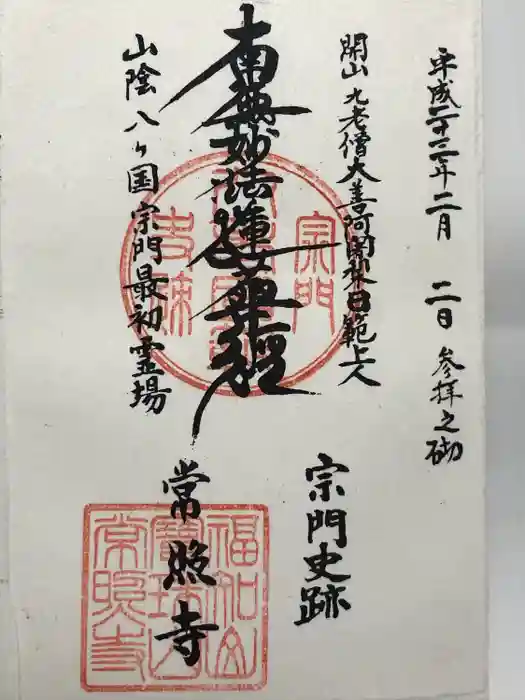 平成二十三年二月 二日 参拝之砌
開山 九老僧大善阿闍梨日範上人
宗門史跡
南無妙法蓮華経
常照寺
山陰八ヶ国宗門最初霊場
宗門
史蹟
福知山
常照寺